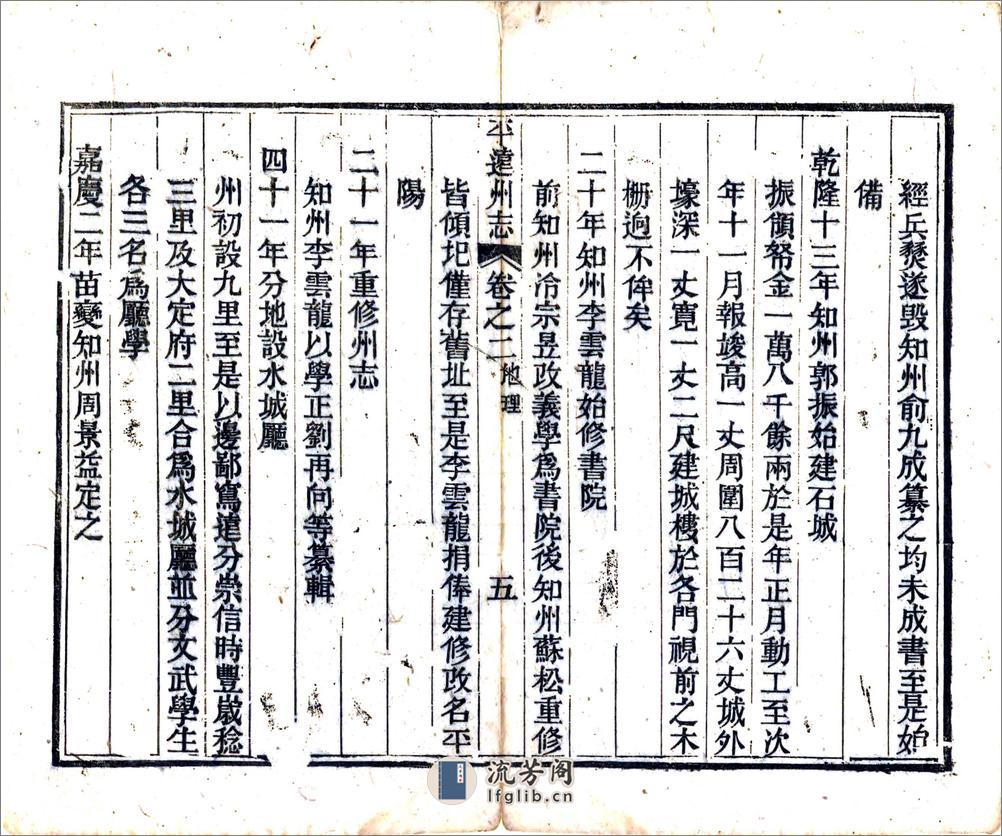 經兵燹遂毀知州俞九成纂之均未成書至是始
備
乾隆十三年知州郭振始建石城
振頒帑金一萬八千餘兩於是年正月動工至次
年十一月報竣高一丈周圍八百二十六丈城外
壕深一丈寬一丈二尺建城樓於各門視前之木
柵逈不侔矣
二十年知州李雲龍始修書院
前知州冷宗昱改義學爲書院後知州蘇松重修
平遠州志 卷之二 地理 五
皆傾圮僅存舊址至是李雲龍捐俸建修改名平
陽
二十一年重修州志
知州李雲龍以學正劉再向等纂輯
四十一年分地設水城廳
州初設九里至是以邊鄙寫遠分崇信時豐歲稔
三里及大定府二里合爲水城廳並分文武學生
各三名爲廳學
嘉慶二年苗變知州周景益定之
流芳阁
lfglib.cn